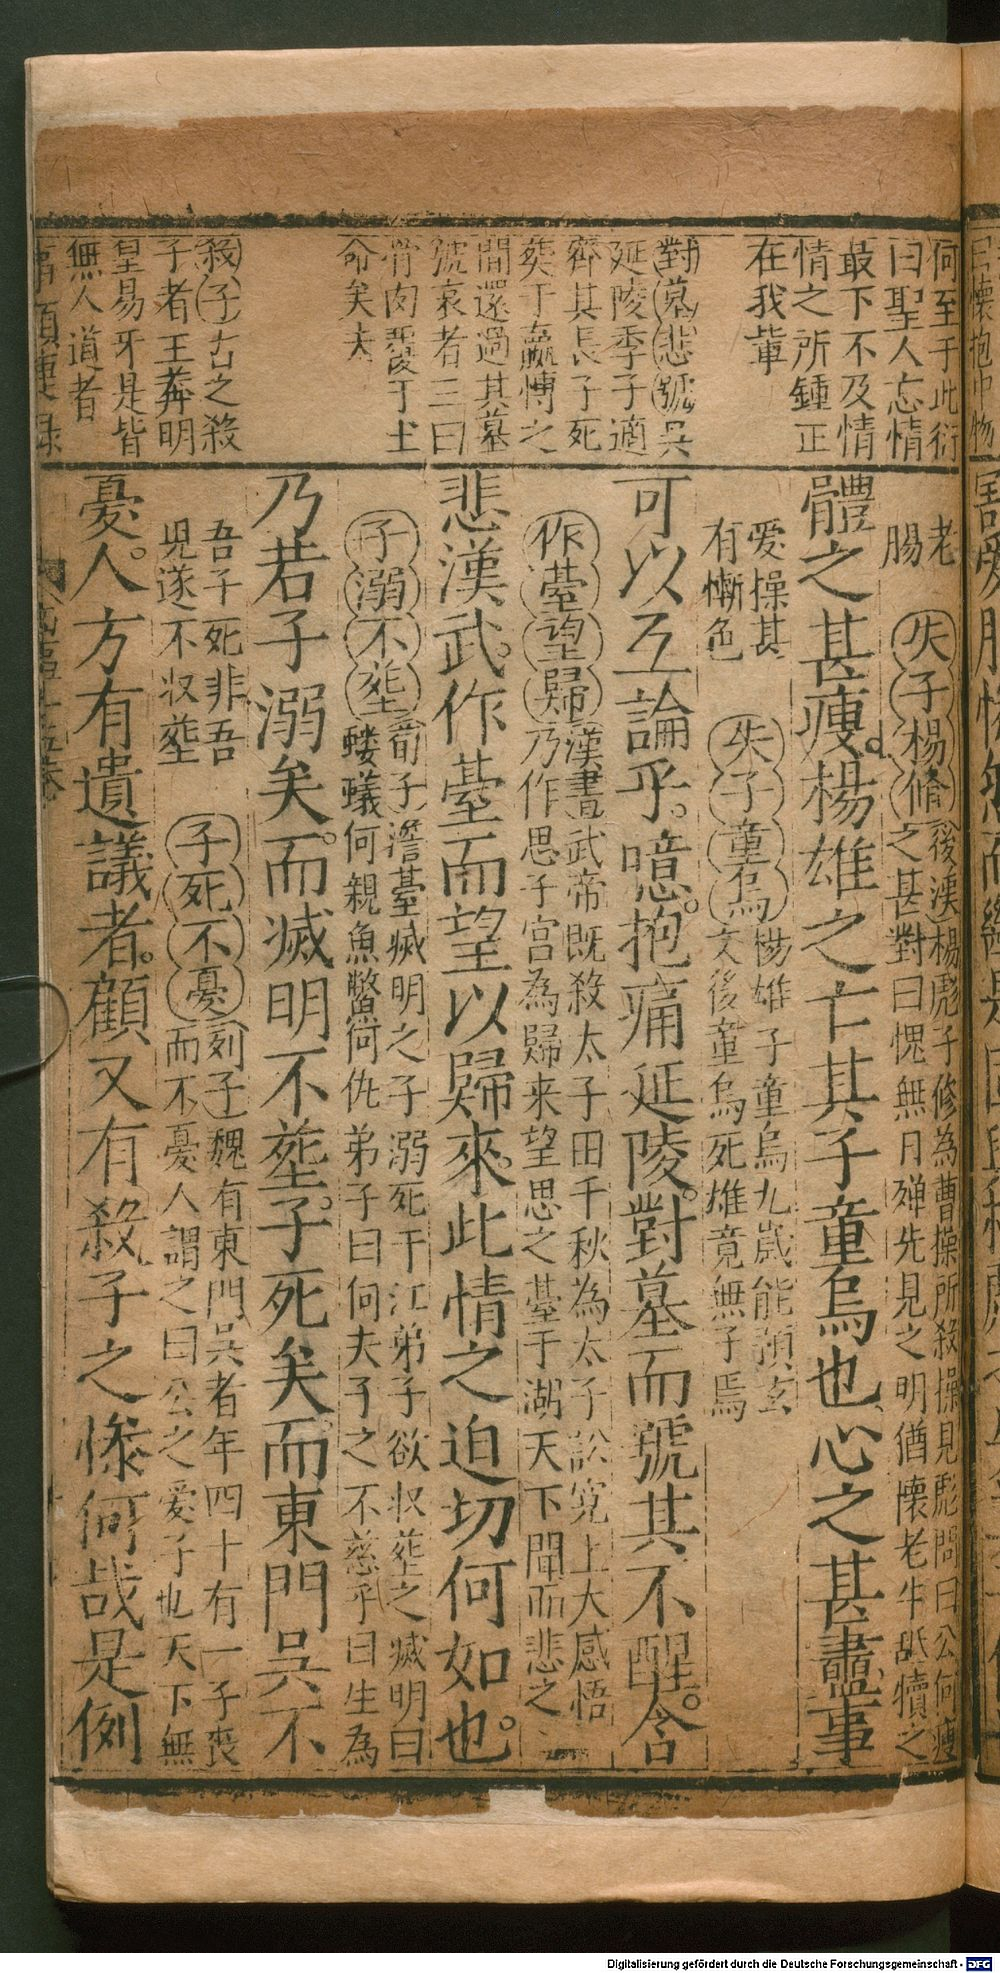 何至于此衍
曰聖人忘情
最下不及情
情之所鍾正
在我輩
對墓悲號吳
延陵季子適
齊其長子死
葬于嬴愽之
間還過其墓
號哀者三曰
骨肉覆于土
命矣夫
殺子古之殺
子者王莽明
皇易牙是皆
無人道者
老
腸
失子楊脩
後漢楊彪子修為曹操所殺操見彪問曰公何瘦
之甚對曰愧無日磾先見之明猶懷老牛舐犢之
體之甚瘦楊雄之亡其子童烏也心之甚盡事
爱操甚
有慚色
失子童烏
楊雄子童烏九嵗能預玄
文後童烏死雄竟無子焉
可以互論乎。噫。抱痛延陵。對墓而號其不醒。含
作臺望歸
漢書武帝既殺太子田千秋為太子訟寃上大感悟
乃作思子宫為歸来望思之臺于湖天下聞而悲之
悲漢武。作臺而望以歸來。此情之迫切何如也。
子溺不塟
荀子澹臺滅明之子溺死于江弟子欲収塟之滅明曰
螻蟻何親魚鱉何仇弟子曰何夫子之不慈乎曰生為
乃若子溺矣。而滅明不塟。子死矣。而東門吳不
吾子死非吾
児遂不収塟
子死不憂
列子魏有東門吳者年四十有一子丧
而不憂人謂之曰公之爱子也天下無
憂。人方有遺議者。顧又有殺子之慘何哉是例
Digitalisierung gefördert durch die Deutsche Forschungsgemeinschaft - DFG